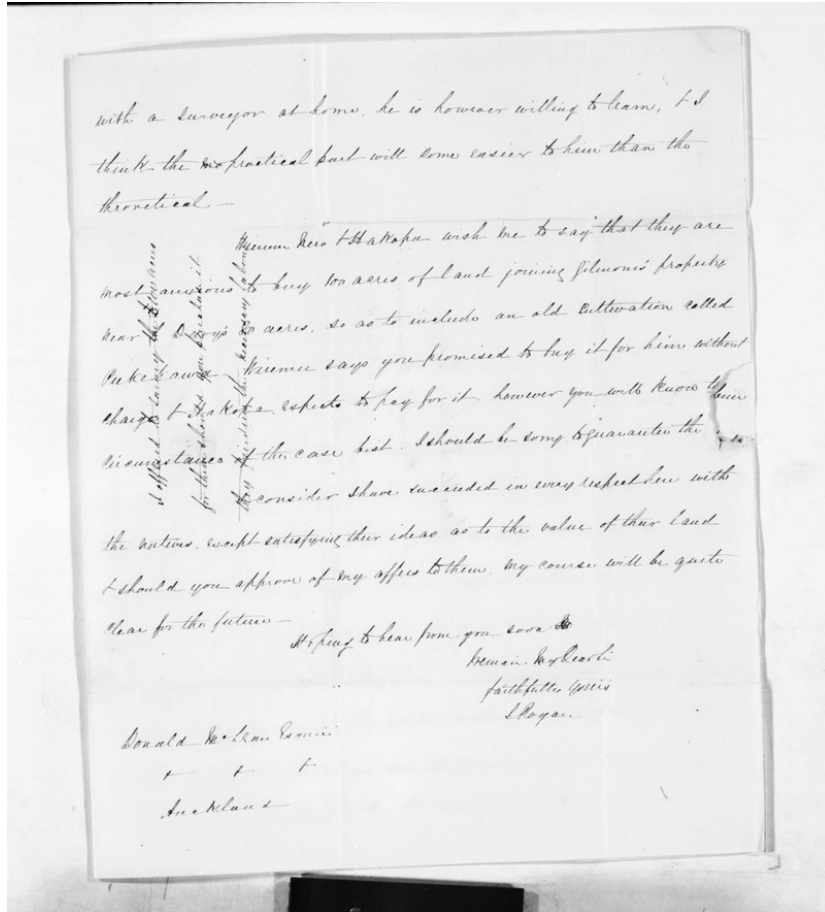 with a surveyor at home, he is however willing to learn, & I
think the practical part will come easier to him than the
throretical —
Wiremu Nero & Hakopa wish me to say that they are
most anxious to buy 100 acres of land joining Gilmour's property
near acres, so as to include an old cultivation called
Wiremu says you promised to buy it for him without
charge & Hakopa expects to pay for it. however you will know the
circumstances of the case best. I should be sorry to guarantee the
I consider I have succeeded in every respect here with
the natives, except satisfying their ideas as to the value of their land
& should you approve of my offers to them, my course will be quite
clear for the future —
Hoping to hear from you soon
I remain My Dear Sir
faithfully yours
J Rogan
Donald McLean Esquire
+ + +
Auckland
I offered to survey the 100 acres
for them should you purchase it
they finding the necessary labour